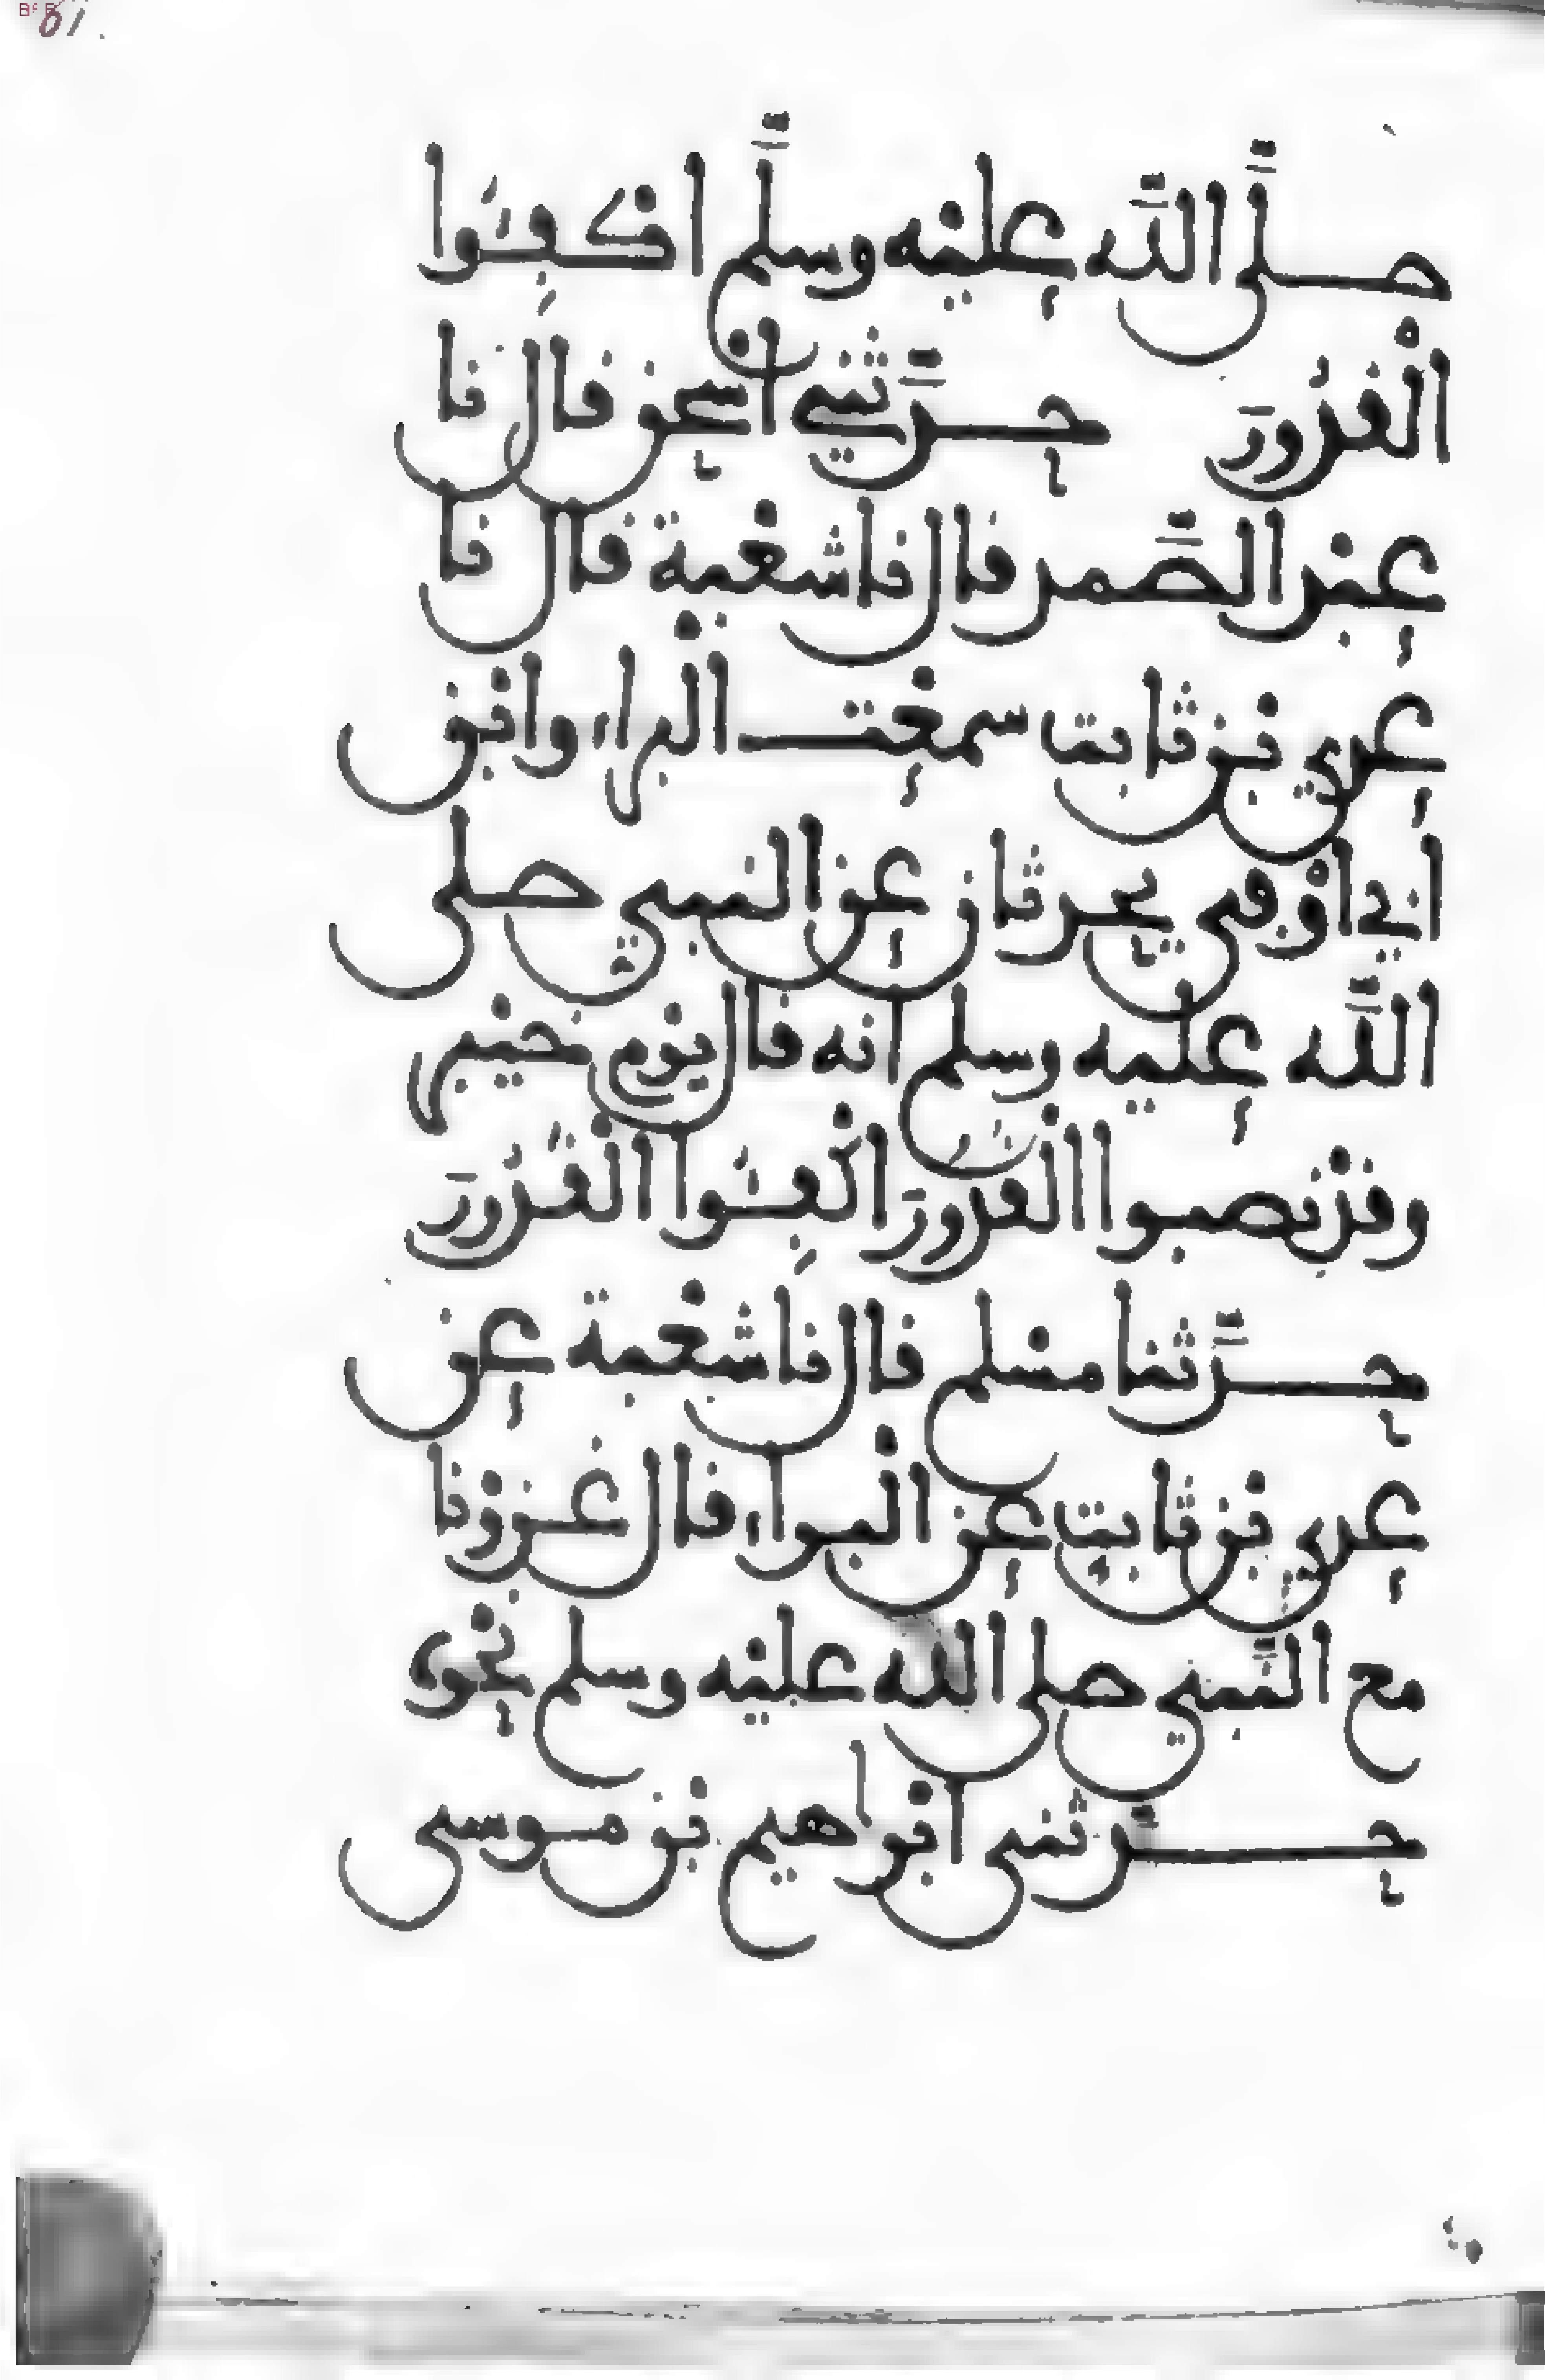 61.
صلَّى اللَّه عليْه وسلَّم اكْفِئُوا
الْقُدُورَ حدَّثني اسحٰق قال نا
عبْد الصَّمد قال نا شعْبة قال نا
عدي بْن ثابت سمعْت الْبراء وابْن
ابي اوْفى يحدثان عن النبي صلى
اللَّه عليه وسلم انه قال يوْم خيْبر
وقدْ نصبوا الْقُدورَ اكْفِئُوا الْقُدُورَ
حدَّثنا مسْلم قال نا شعْبة عن
عدي بْن ثابت عن الْبراء قال غزوْنا
مع النَّبي صلى اللّه عليْه وسلم نحْوه
حدَّثني ابْراهيم بْن موسى